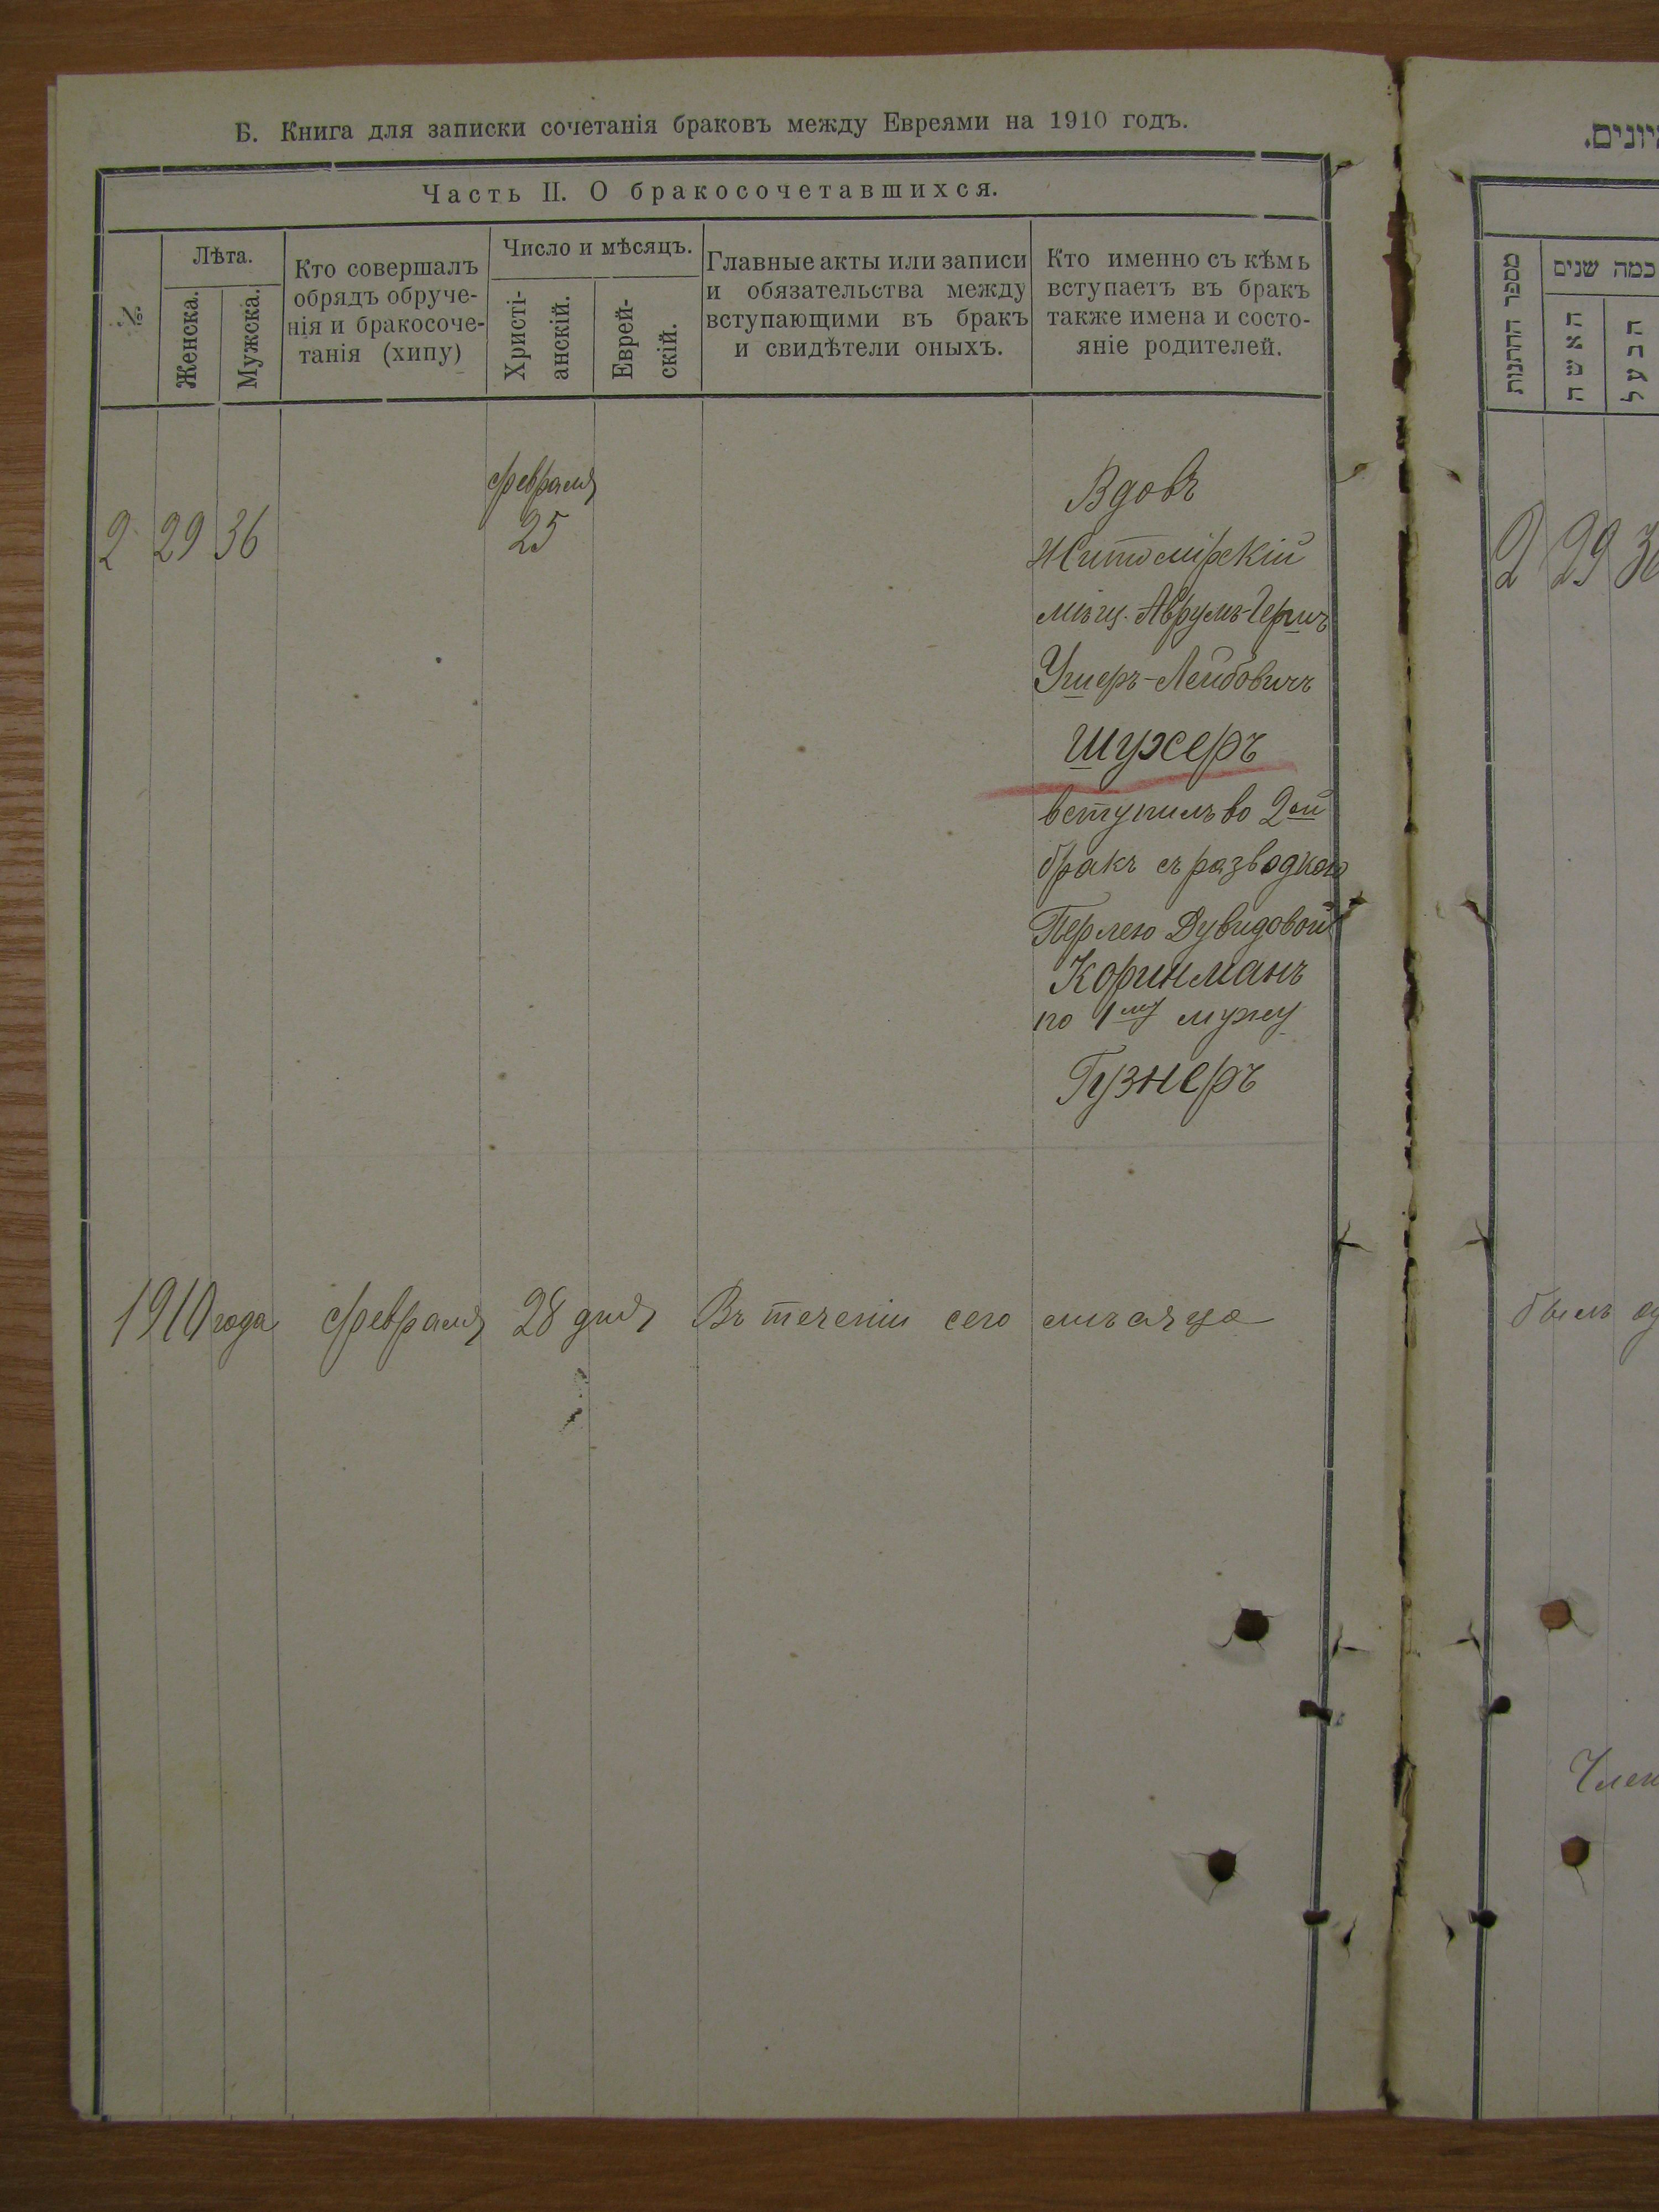 Б. Книга для записки сочетанія браковъ между Евреями на 1910 годъ.
Часть II. О бракосочетавшихся.
№
Лѣта.
Женска.
Мужска.
Кто совершалъ
обрядъ обруче-
нія и бракосоче-
танія (хипу)
Число и мѣсяцъ.
Христі-
анскій.
Еврей-
скій.
Главные акты или записи
и обязательства между
вступающими въ бракъ
и свидѣтели оныхъ.
Кто именно съ кѣмъ
вступаетъ въ бракъ
также имена и состо-
яніе родителей.
2 29 36
февраля
25
Вдовъ
Житомірскій
мѣщ. Аврумъ-Гершъ
Ушеръ-Лейбовичъ
Шухеръ
вступилъ во 2ой
бракъ съ разводкою
Перлею Дувидовой
Коринманъ
по 1му мужу
Гузнеръ
1910 года февраля 28 дня Въ теченіи сего мѣсяца
מספר החתונות
כמה שנים
האשה
הבעל
2 29
былъ